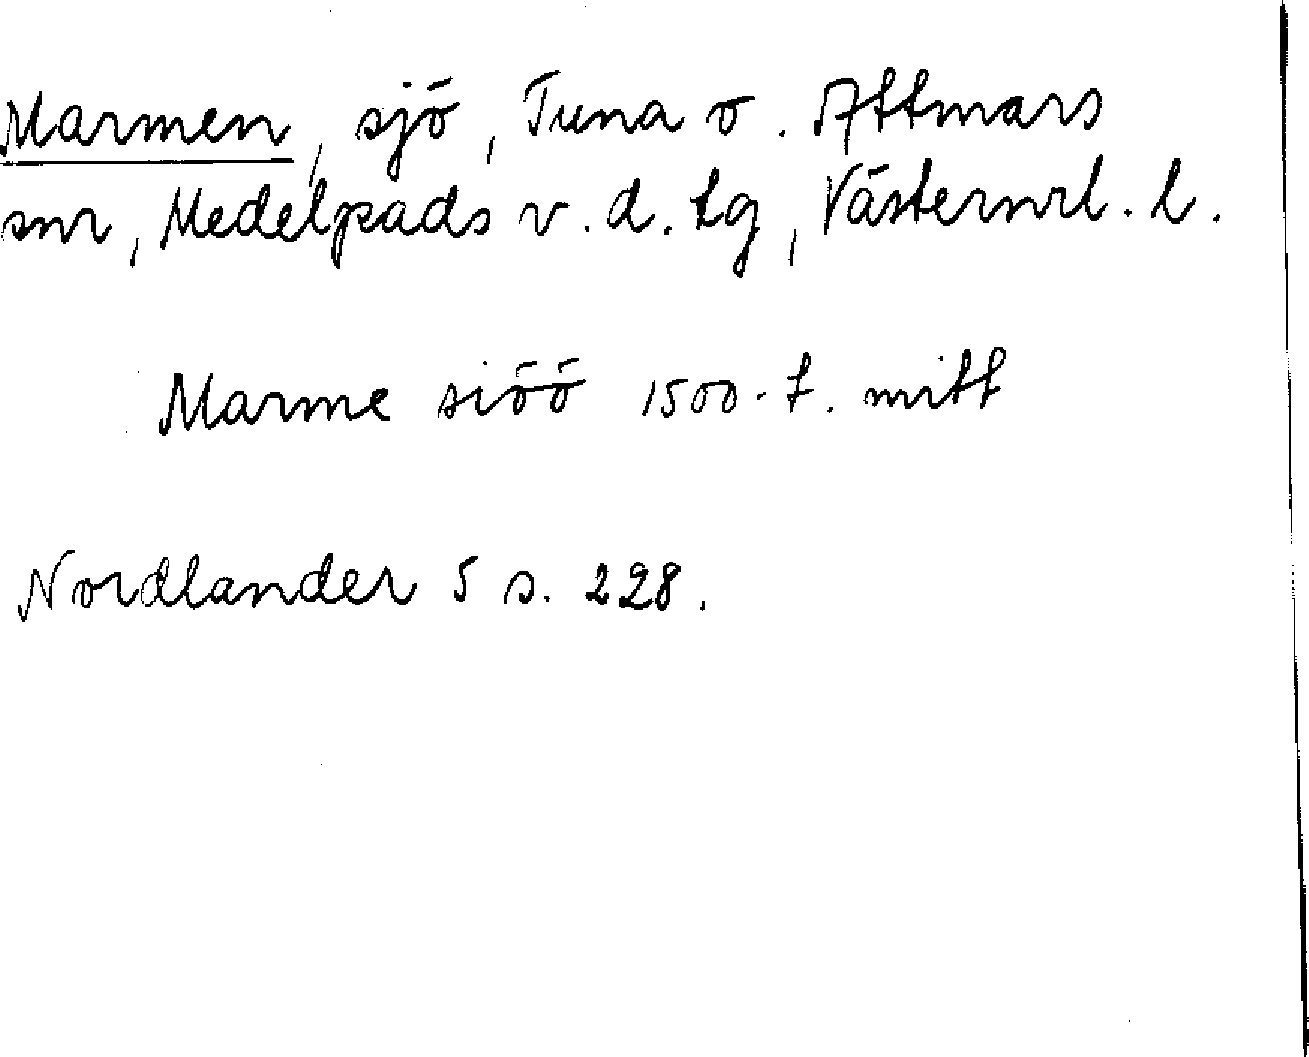 Marmen, sjö, Tuna o. Attmars
snr, Medelpads v. d. tg, Västernrl. l.
Marme siöö 1500-t. mitt
Nordlander 5 s. 228.